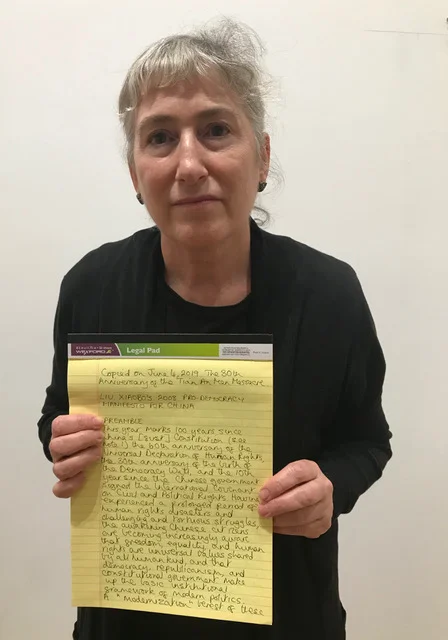 WEXFORD
Legal Pad
Copied on June 4, 2019. The 30th
Anniversary of the Tian An Men Massacre
LIU XIAOBO'S 2008 PRO-DEMOCRACY
MANIFESTO FOR CHINA
PREAMBLE
This year marks 100 years since
China's [first] Constitution (see
note 1) the 60th anniversary of the
Universal Declaration of Human Rights,
the 30th anniversary of the birth of
the Democracy Wall, and the 10th
year since the Chinese government
signed the International Covenant
on Civil and Political Rights. Having
experienced a prolonged period of
human rights disasters and
challenging and tortuous struggles,
the awakening Chinese citizens
are becoming increasingly aware
that freedom, equality, and human
rights are universal values shared
by all humankind, and that
democracy, republicanism, and
constitutional government make
up the basic institutional
framework of modern politics.
A "modernization" bereft of these